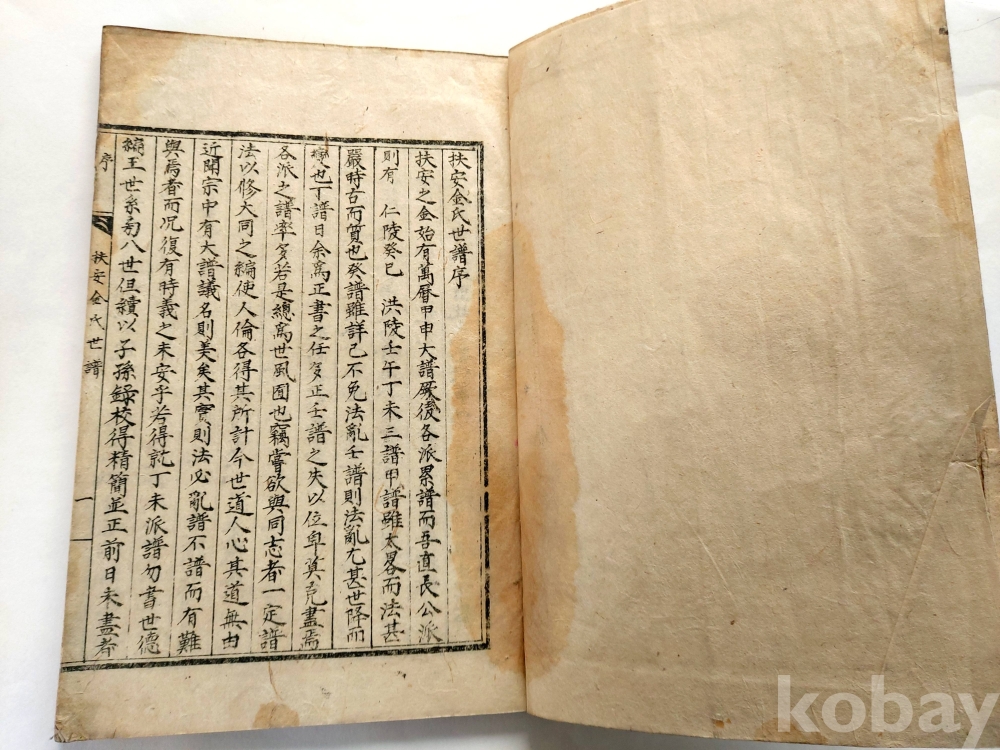 扶安金氏世譜序
扶安之金始有萬曆甲申大譜厥後各派累譜而吾直長公派
則有 仁陵癸巳 洪陵壬午丁未三譜甲譜雖太畧而法甚
嚴時古而質也癸譜雖詳已不免法亂壬譜則法亂尤甚世降而
變也丁譜日余寫正書之任多正壬譜之失以位卑莫克盡焉
各派之譜率多若是總寫世風囿也竊嘗欲與同志者一定譜
法以修大同之編使人倫各得其所計今世道人心其道無由
近聞宗中有大譜議名則美矣其實則法必亂譜不譜而有難
與焉者而况復有時義之未安乎若得就丁未派譜勿書世德
編王世系南八世但續以子孫錄校得精簡並正前日未盡者
序
扶安金氏世譜
一
kobay